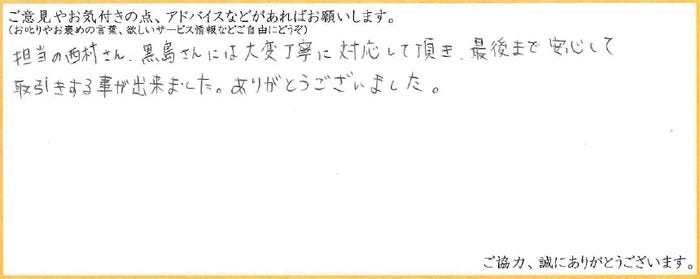 ご意見やお気付きの点、アドバイスなどがあればお願いします。
(お叱りやお褒めの言葉、欲しいサービス情報などご自由にどうぞ)
担当の西村さん、黒島さんには大変丁寧に対応して頂き、最後まで安心して
取引きする事が出来ました。ありがとうございました。
ご協力、誠にありがとうございます。